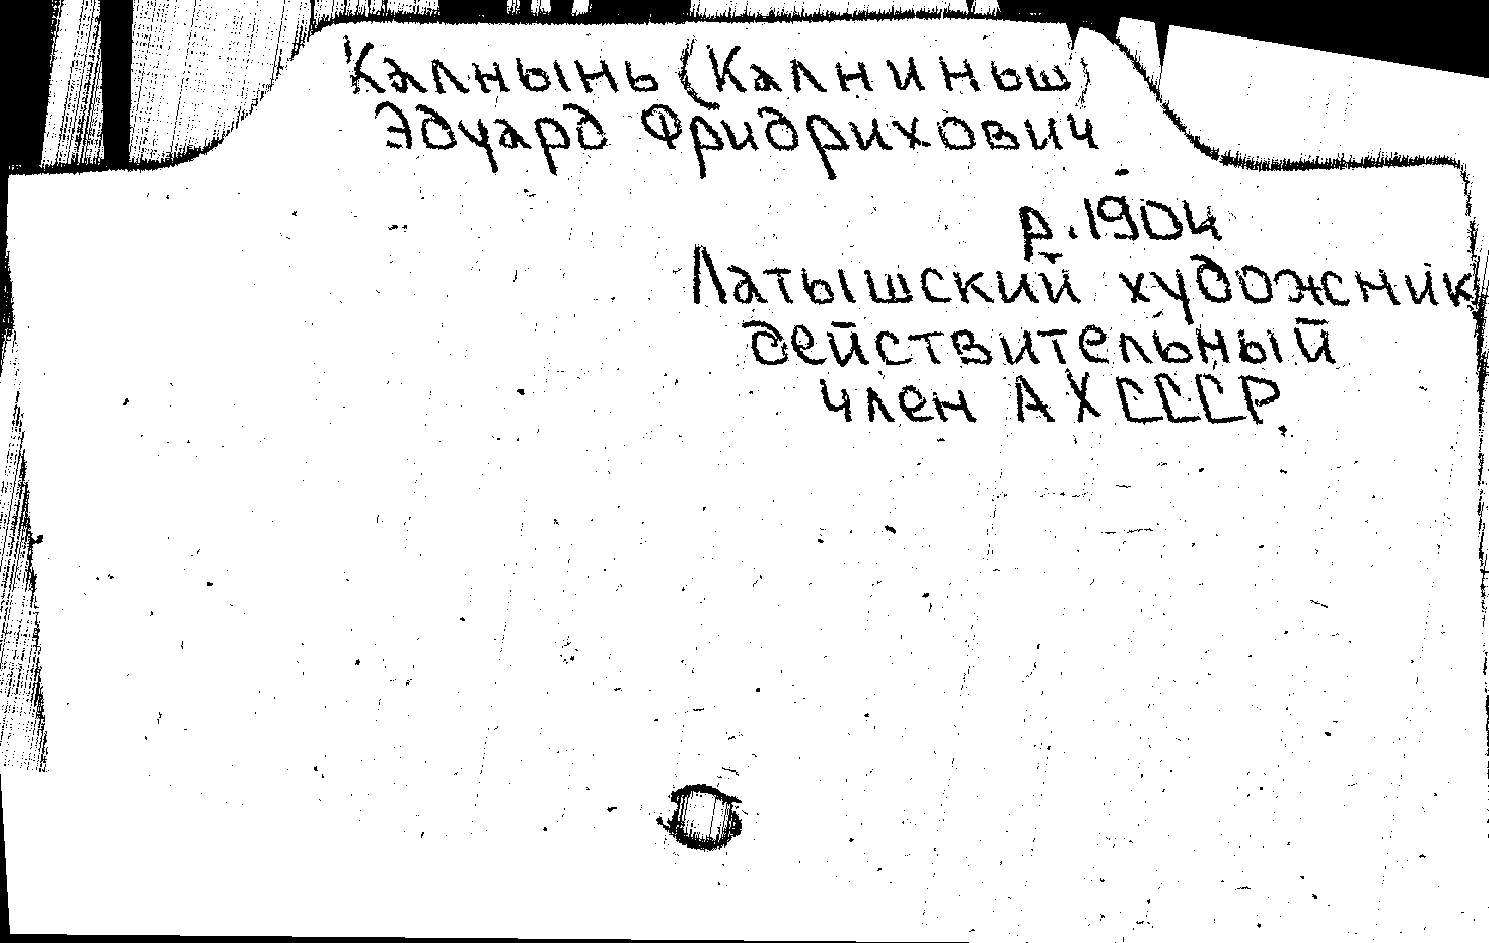 Калнынь (Калниньш)
Эдуард Фридрихович
р. 1904
Латышский художник
действительный
член АХ СССР.